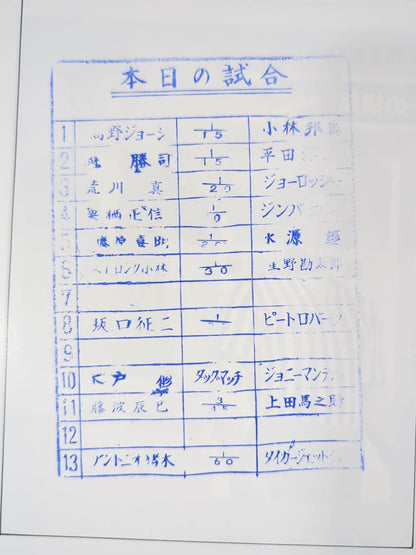 本日の試合
1 高野ジョージ 1/15 小林邦
2 勝司 1/15 平田
3 荒川真 1/20 ジョーロッシー
4 栗栖正信 1/0 ジンバ
5 藤原喜明 1/20 K源
6 ストロング小林 1/30 生野勘太郎
7
8 坂口征二 1 ピートロバーツ
9
10 K戸修 タッグマッチ ジョニーマン
11 藤波辰巳 3/45 上田馬之助
12
13 アントニオ猪木 1/60 タイガージェット